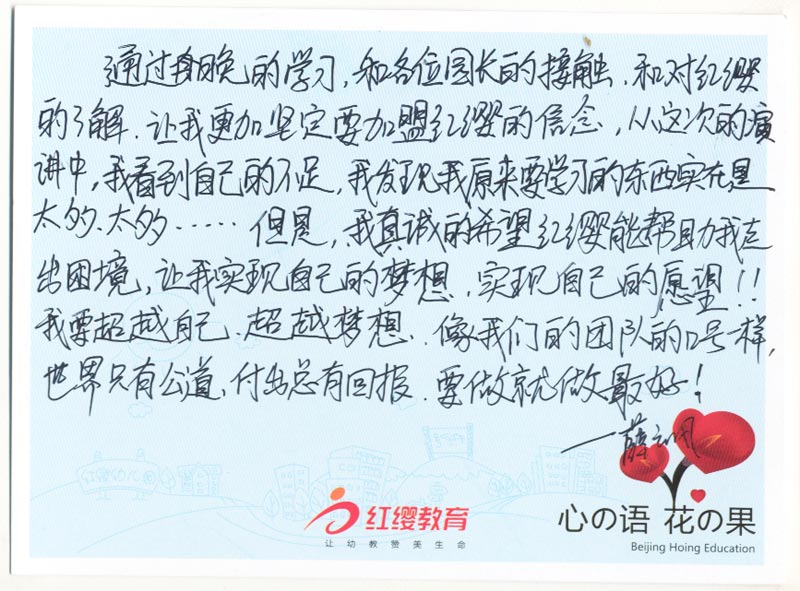 通过身晚的学习,和各位园长的接触,和对红缨
的了解.让我更加坚定要加盟红缨的信念,从这次的演
讲中,我看到自己的不足,我发现我原来要学习的东西实在是
太多、太多······但是,我真诚的希望红缨能帮助我走
出困境,让我实现自己的梦想,实现自己的愿望!!
我要超越自己、超越梦想.像我们的团队的口号一样,
世界只有公道,付出总有回报.要做就做最好!
一薛
红缨幼儿园
红缨教育
让幼教赞美生命
心の语 花の果
Beijing Hoing Education